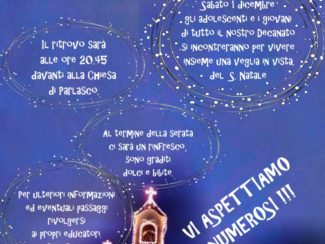 Sabato 1 dicembre
gli adolescenti e i giovani
di tutto il nostro Decanato
si incontreranno per vivere
insieme una veglia in vista
del S. Natale.
Il ritrovo sarà
alle ore 20.45
davanti alla chiesa
di Parlasco.
Al termine della serata
ci sarà un rinfresco,
sono graditi
dolci e bibite.
Per ulteriori informazioni
ed eventuali passaggi
rivolgersi
ai propri educatori.
VI ASPETTIAMO
NUMEROSI !!!